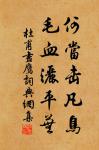 何當擊凡鳥
毛血灑平蕪
杜甫畫鷹詞典網集